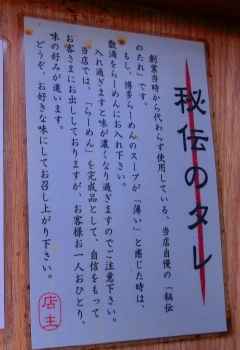 秘伝のタレ
創業当時から代わらず使用している、当店自慢の「秘伝
のたれ」です。
もし、博多らーめんのスープが「薄い」と感じた時は、
数滴をらーめんにお入れ下さい。
入れ過ぎますと味が濃くなり過ぎますのでご注意下さい。
当店では、「らーめん」を完成品として、自信をもって
お客さまにお出ししておりますが、お客様お一人おひとり、
味の好みが違います。
どうぞ、お好きな味にしてお召し上がり下さい。
店主